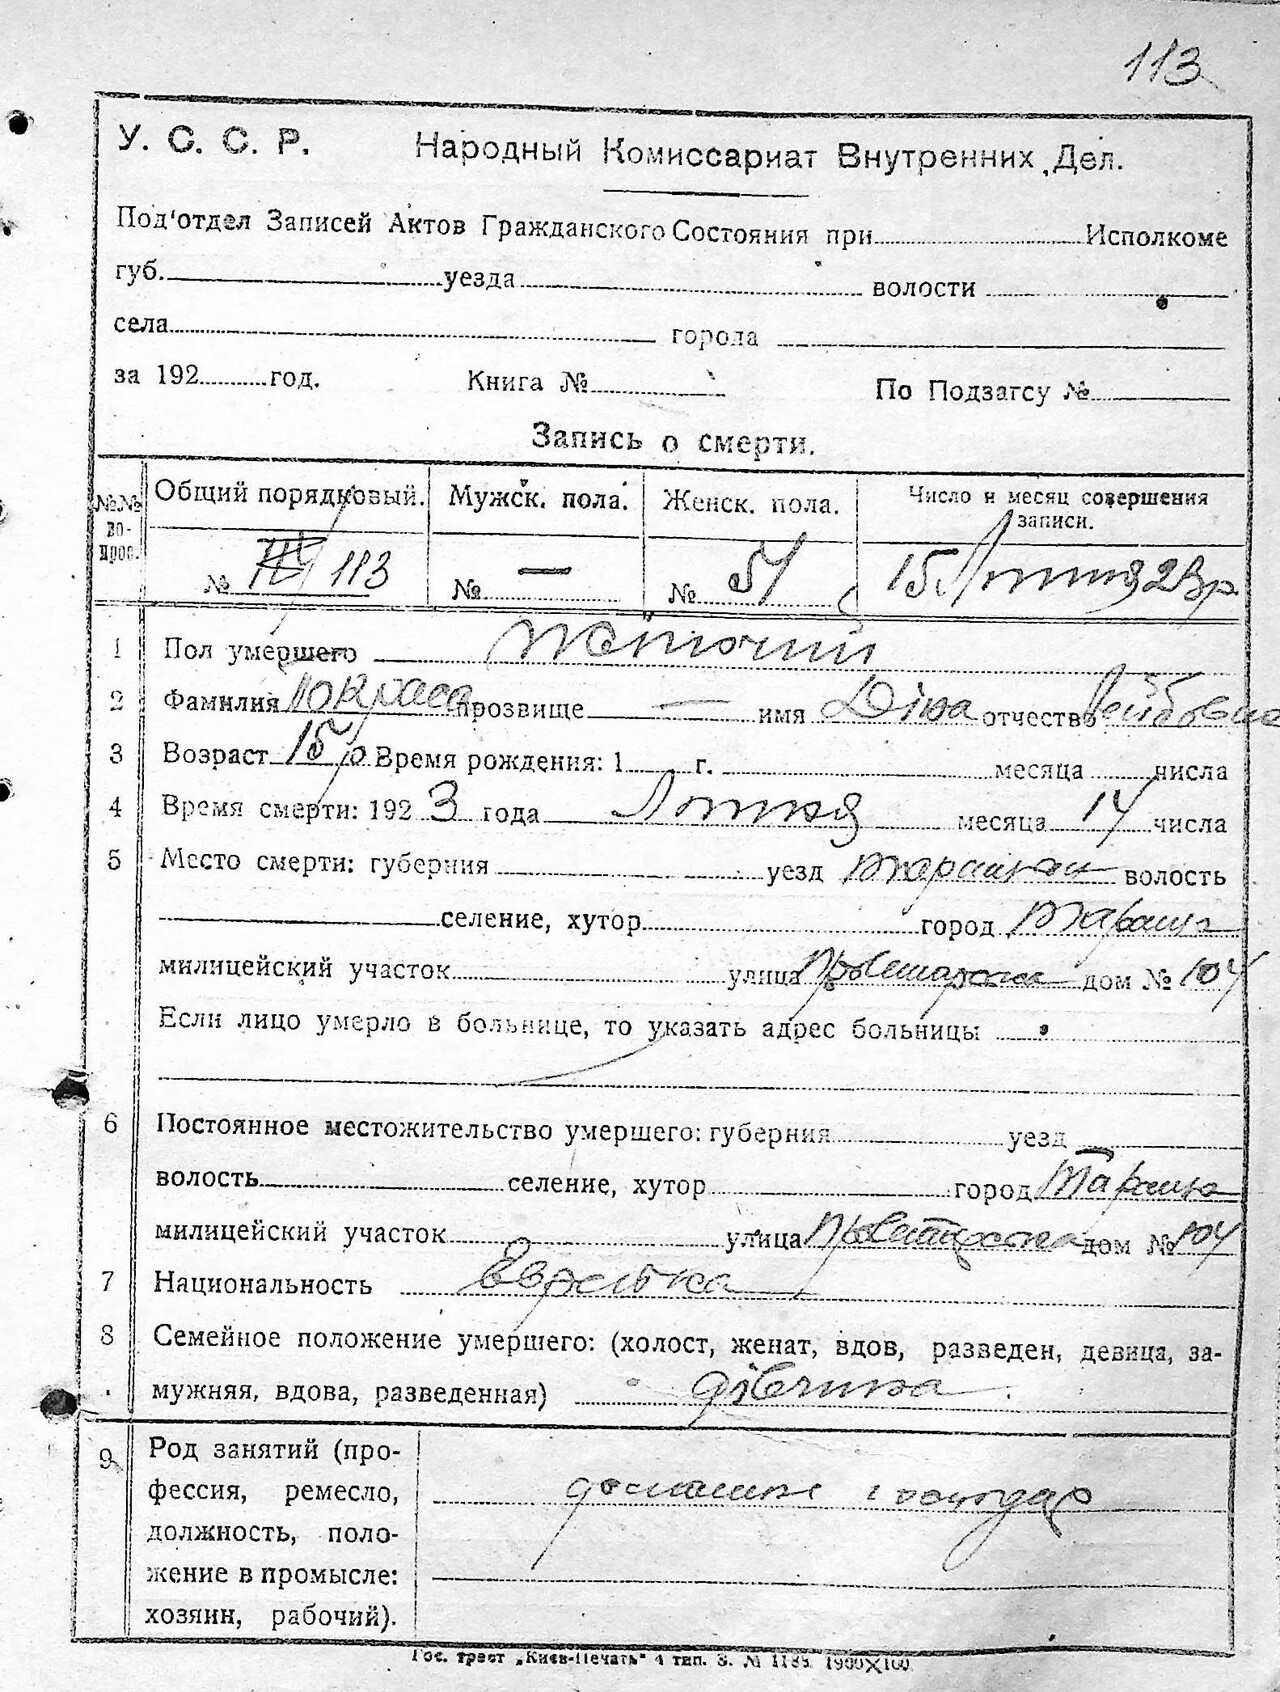 113
У. С. С. Р. Народный Комиссариат Внутренних Дел.
Под'отдел Записей Актов Гражданского Состояния при Исполкоме
губ. уезда волости
села города
за 192 год. Книга № По Подзагсу №
Запись о смерти.
№№ во-прос. Общий порядковый. Мужск. пола. Женск. пола. Число и месяц совершения записи.
№ 113 № — № 51 15 Лютня 23 р
1 Пол умершего Жіночий
2 Фамилия Покраса прозвище — имя Діна отчество Лейбовна
3 Возраст 15 р Время рождения: 1 г. месяца числа
4 Время смерти: 1923 года Лютня месяца 14 числа
5 Место смерти: губерния уезд волость
селение, хутор город Тараща
милицейский участок улица дом № 104
Если лицо умерло в больнице, то указать адрес больницы
6 Постоянное местожительство умершего: губерния уезд
волость селение, хутор город Тараща
милицейский участок улица дом № 104
7 Национальность Еврейка
8 Семейное положение умершего: (холост, женат, вдов, разведен, девица, за-
мужняя, вдова, разведенная) дівчина
9 Род занятий (про-
фессия, ремесло, домашне господар
должность, поло-
жение в промысле:
хозяин, рабочий).
Гос. трест „Киев-Печать" 4 тип. З. № 1185 1900Х100